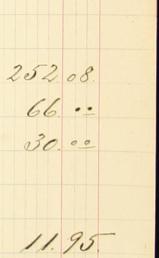 252.08.
66. ..
30. 00
11.95.